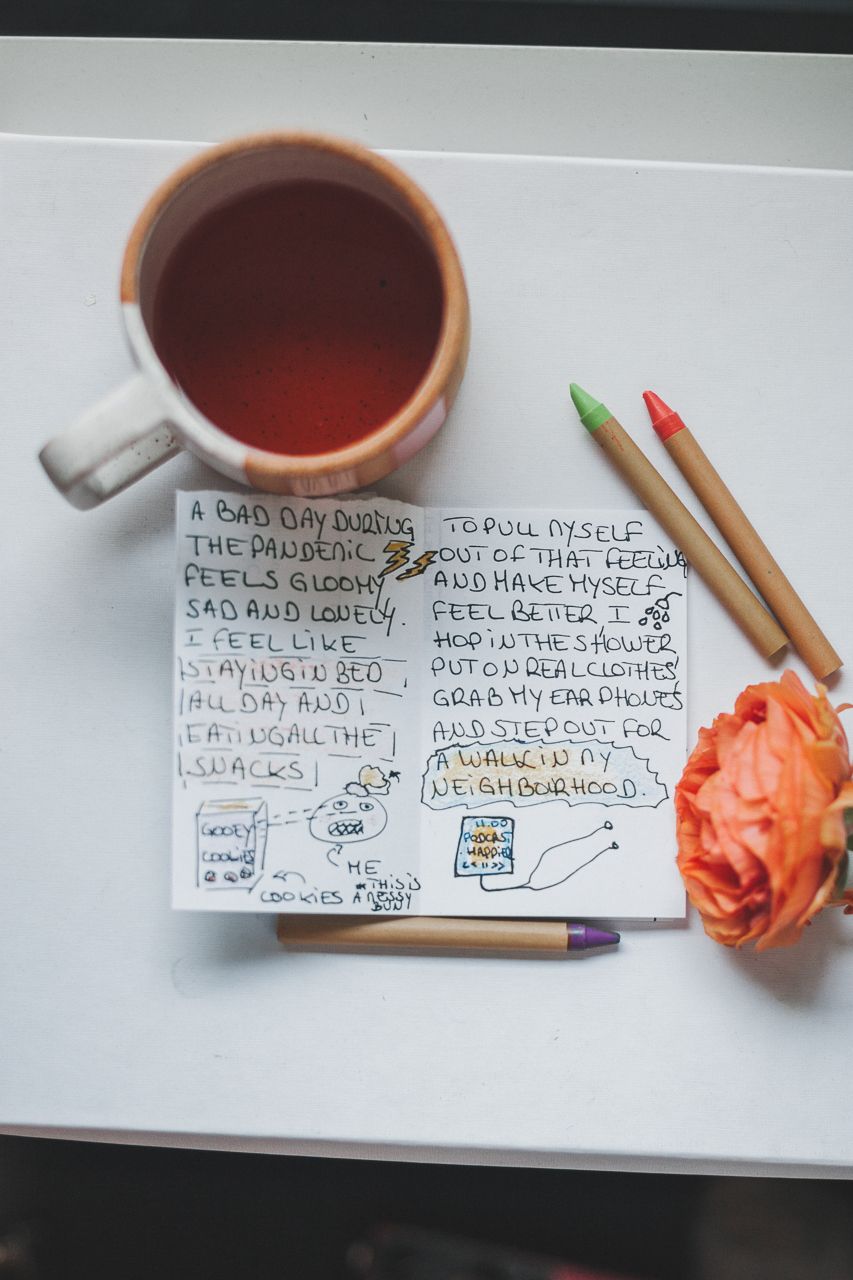 A BAD DAY DURING
THE PANDEMIC
FEELS GLOOMY
SAD AND LONELY.
I FEEL LIKE
STAYING IN BED
ALL DAY AND
EATING ALL THE
SNACKS
GOOEY
COOKIES
ME
COOKIES
*THIS IS
A MESSY
BUN!
TO PULL MYSELF
OUT OF THAT FEELING
AND MAKE MYSELF
FEEL BETTER I
HOP IN THE SHOWER
PUT ON REAL CLOTHES
GRAB MY EARPHONES
AND STEP OUT FOR
A WALK IN MY
NEIGHBOURHOOD.
11.00
PODCAST
HAPPIER